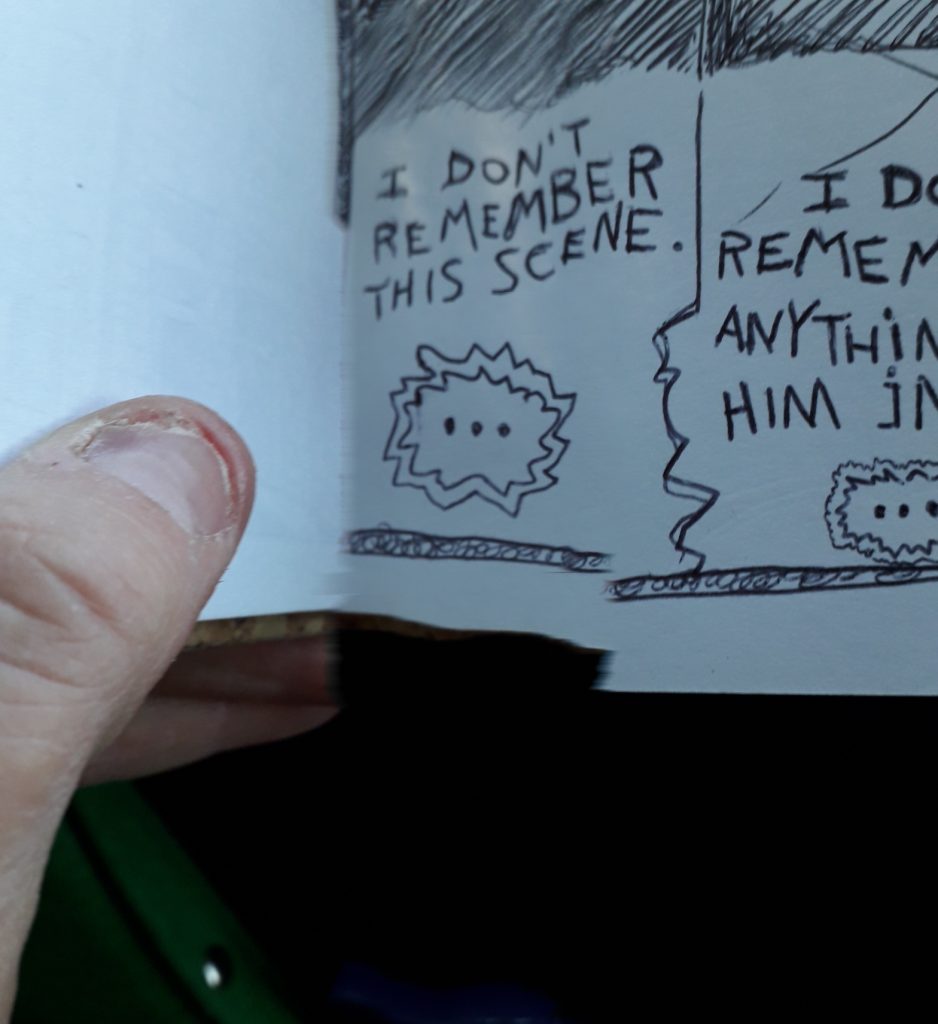 I DON'T
REMEMBER
THIS SCENE.
...
I DO
REMEM
ANYTHIN
HIM IN
...